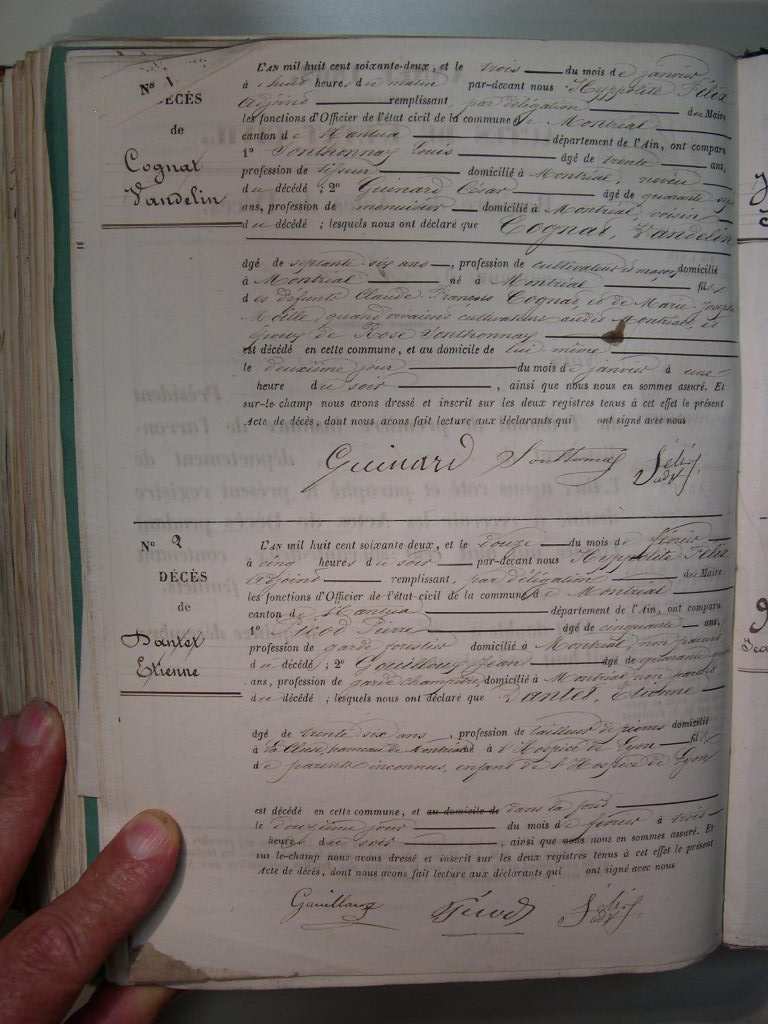 N° 1
DÉCÈS
de
Cognat
Vandelin
L'AN mil huit cent soixante-deux, et le trois du mois de janvier
à heures du matin par-devant nous Hyppolite Félix
Adjoint remplissant par délégation du Maire
les fonctions d'Officier de l'état civil de la commune de Montréal
canton de Nantua département de l'Ain, ont comparu
1° Sonthonnax Louis âgé de trente ans,
profession de domicilié à Montréal, neveu
du décédé ; 2° Guinard César âgé de quarante
ans, profession de menuisier domicilié à Montréal, voisin
du décédé ; lesquels nous ont déclaré que Cognat, Vandelin
âgé de septante six ans, profession de cultivateur et maçon domicilié
à Montréal né à Montréal fils
des défunts Claude François Cognat, et de Marie Josephe
quand vivaient cultivateurs audit Montréal, et
époux de Rose Sonthonnax
est décédé en cette commune, et au domicile de lui même
le deuxième jour du mois de janvier à une
heure du soir, ainsi que nous nous en sommes assuré. Et
sur-le-champ nous avons dressé et inscrit sur les deux registres tenus à cet effet le présent
Acte de décès, dont nous avons fait lecture aux déclarants qui ont signé avec nous
Guinard Sonthonnax Félix
adjt
N° 2
DÉCÈS
de
Dantet
Etienne
L'AN mil huit cent soixante-deux, et le douze du mois de février
à cinq heures du soir par-devant nous Hyppolite Félix
Adjoint remplissant, par délégation du Maire
les fonctions d'Officier de l'état-civil de la commune de Montréal
canton de Nantua département de l'Ain, ont comparu
1° Pierre âgé de cinquante ans,
profession de garde forestier domicilié à Montréal, non parent
du décédé ; 2° Gouilloux Jean âgé de quarante
ans, profession de garde champêtre, domicilié à Montréal non parent
du décédé ; lesquels nous ont déclaré que Dantet, Etienne
âgé de trente six ans, profession de tailleur de pierres domicilié
à la Cluse, hameau de Montréal né à l'Hospice de Lyon fils
de parents inconnus, enfant de l'Hospice de Lyon
est décédé en cette commune, et au domicile de dans la
le douzième jour du mois de février à trois
heures du soir, ainsi que nous nous en sommes assuré. Et
sur le-champ nous avons dressé et inscrit sur les deux registres tenus à cet effet le présent
Acte de décès, dont nous avons fait lecture aux déclarants qui ont signé avec nous
Gouilloux Félix
adjt